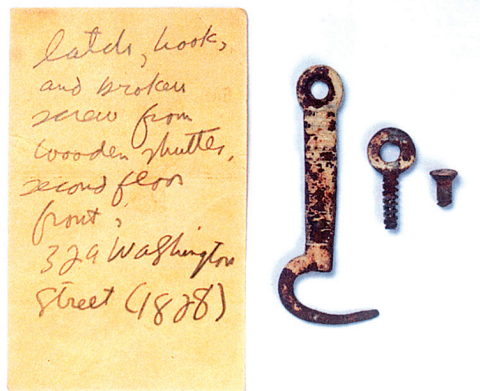 latch, hook,
and broken
screw from
wooden shutter,
second floor
front;
329 Washington
Street (1828)